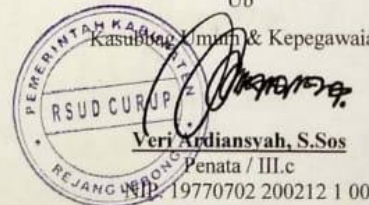 Ub
Kasubbag Umum & Kepegawaia
PEMERINTAH KABUPATEN
RSUD CURUP
REJANG LEBONG
Veri Ardiansyah, S.Sos
Penata / III.c
NIP. 19770702 200212 1 00